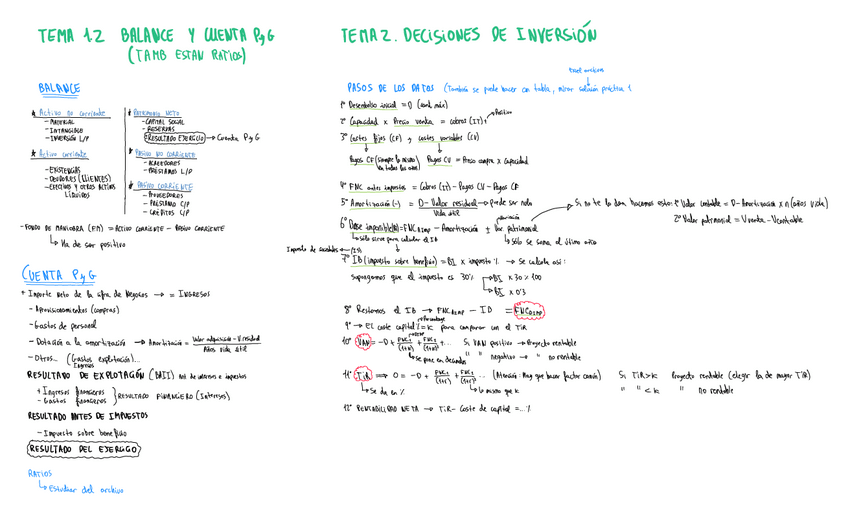 TEMA 1.2 BALANCE Y CUENTA PyG
(TAMB ESTAN RATIOS)
BALANCE
* Activo no corriente
- MATERIAL
- INTANGIBLE
- INVERSIÓN L/P
* Activo corriente
- EXISTENCIAS
- DEUDORES (CLIENTES)
- EFECTIVO Y OTROS ACTIVOS
LÍQUIDOS
* PATRIMONIO NETO
- CAPITAL SOCIAL
- RESERVAS
- RESULTADO EJERCICIO → Cuenta PyG
* PASIVO NO CORRIENTE
- ACREEDORES
- PRÉSTAMOS L/P
* PASIVO CORRIENTE
- PROVEEDORES
- PRÉSTAMO C/P
- CRÉDITOS C/P
- FONDO DE MANIOBRA (FM) = ACTIVO CORRIENTE - PASIVO CORRIENTE
↳ Ha de ser positivo
CUENTA PyG
+ Importe neto de la cifra de Negocios → = INGRESOS
- Aprovisionamientos (compras)
- Gastos de personal
- Dotación a la amortización → Amortización = Valor adquisición - V. residual
Años vida útil
- Otros... (Gastos explotación)...
Ingresos
RESULTADO DE EXPLOTACIÓN (BAII) Ant de intereses e impuestos
+ Ingresos financieros
- Gastos financieros
RESULTADO FINANCIERO (Intereses)
RESULTADO ANTES DE IMPUESTOS
- Impuesto sobre beneficio
RESULTADO DEL EJERCICIO
RATIOS
↳ Estudiar del archivo
TEMA 2. DECISIONES DE INVERSIÓN
PASOS DE LOS DATOS (También se puede hacer con tabla, mirar solución práctica 1
1º Desembolso inicial = D
2º Capacidad x Precio venta = cobros (IT)
Positivo
3º Costes fijos (CF) y costes variables (CV)
Pagos CF (siempre lo mismo
en todos los años)
Pagos CV = Precio compra x Capacidad
4º FNC antes impuestos = Cobros (IT) - Pagos CV - Pagos CF
5º Amortización (-) = D - Valor residual → puede ser nulo
Vida útil
Si no te lo dan hacemos esto: 1º Valor contable = D - Amortización x n (años vida)
2º Valor patrimonial = Vventa - Vcontable
variación
6º Base imponible (BI) = FNC AIMP - Amortización ± Var. patrimonial
↳ sólo sirve para calcular el IB
↳ sólo se suma el último año
Impuesto de sociedades (IS)
7º IB (impuesto sobre beneficio) = BI x impuesto % → Se calcula así:
Supongamos que el impuesto es 30% → BI x 30 % 100
→ BI x 0'3
8º Restamos el IB → FNC AIMP - IB = FNC DIMP
9º → El coste capital % = K para comparar con el TIR
Porcentaje
10º VAN = -D + FNC1/(1+k) + FNC2/(1+k)² + ... Si VAN positivo → Proyecto rentable
↳ Se pone en decimales
" " negativo → " no rentable
11º TIR ⇒ 0 = -D + FNC1/(1+r) + FNC2/(1+r)² ... (Atención: Hay que hacer factor común) Si TIR > K Proyecto rentable (elegir la de mayor TIR)
↳ Se da en %
↳ lo mismo que K
" " < K " no rentable
12º RENTABILIDAD NETA → TIR - Coste de capital = ...%